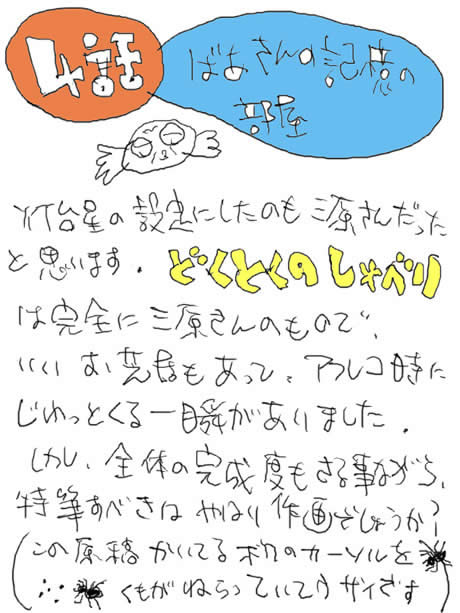 4話
ばあさんの記憶の
部屋
灯台星の設定にしたのも三原さんだった
と思います。どくとくのしゃべり
は完全に三原さんのもので、
いいお芝居もあって、アフレコ時に
じわっとくる一瞬がありました。
しかし、全体の完成度もさる事ながら、
特筆すべきはやはり作画でしょうか?
(この原稿かいてるボクのカーソルを
くもがねらっていてウザイです)